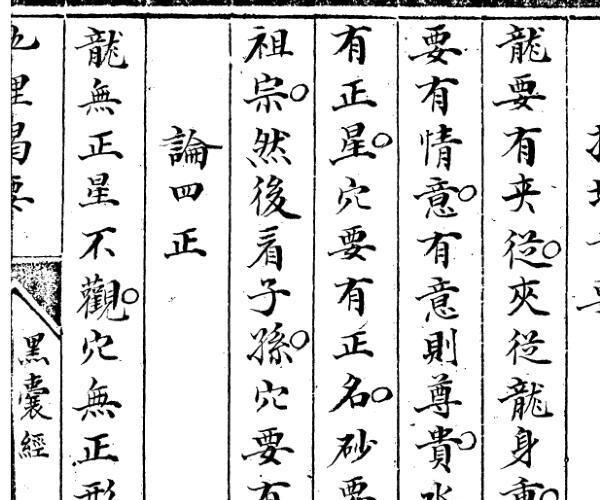 龍要有夾從夾從龍身重
要有情意有意則尊貴水
有正星穴要有正名砂要
祖宗然後看子孫穴要有
論四正
龍無正星不觀穴無正形
黑囊經